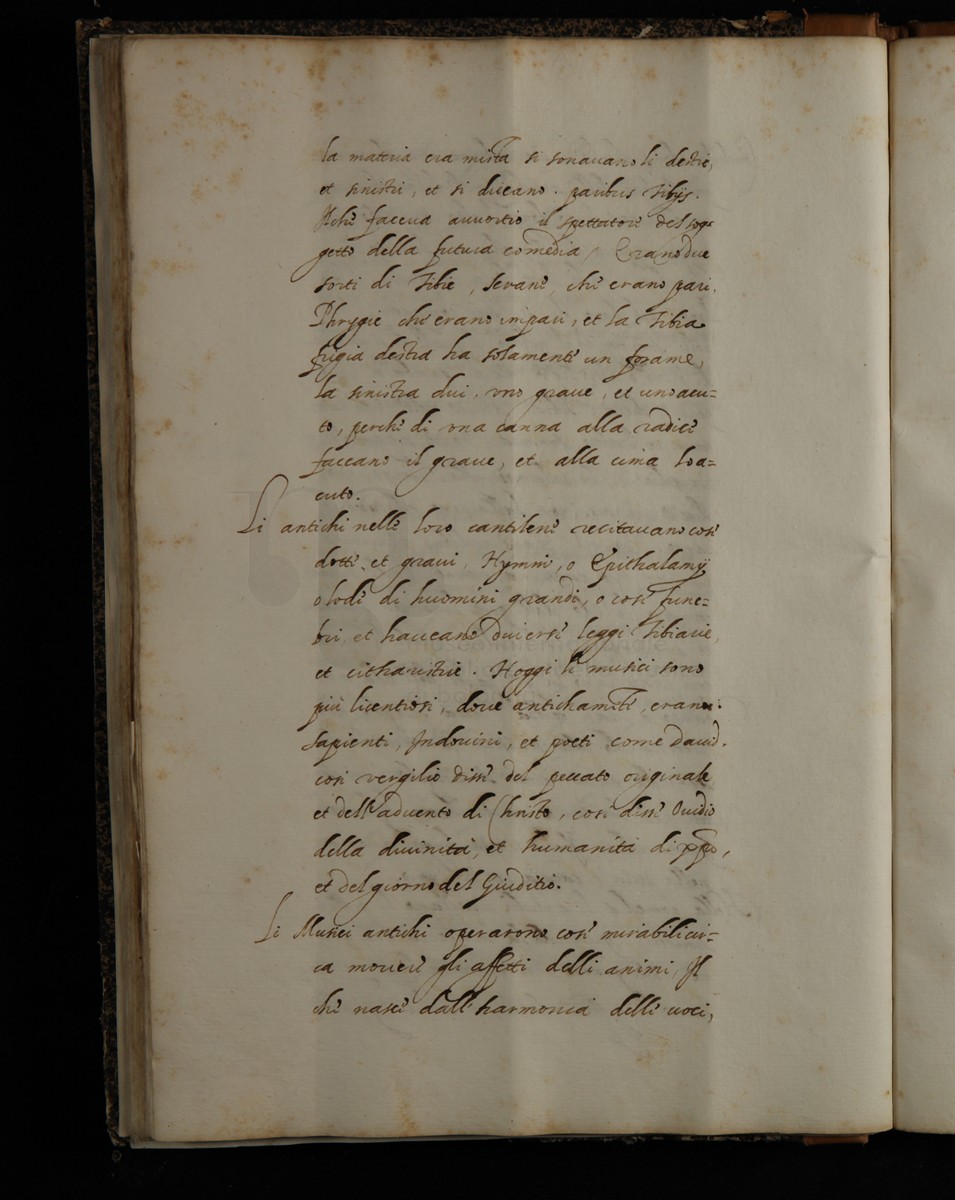 la materia era mista si sonauano li destre,
et sinistri, et si diceano. paribus tibijs.
Ilche faceua auuertir il spettatore del sog-
getto della futura comedia / Erano due
sorti di tibie, serane, che erano pari.
Phrygie che erano impari, et la tibia
frigia destra ha solamente un forame,
la sinistra dui, uno graue, et uno acu=
to, perche di una canna alla radice
faceano il graue, et alla cima lo a=
cuto.
Li antichi nelle loro cantilene recitauano cose
dotte, et graui, Hymni, o Epithalamij
o lodi di huomini grandi, o cose fune=
bri, et haueano diuerse leggi tibiarie,
et citharistrie. Hoggi li musici sono
piu licentiosi, doue antichamte, erano.
sapienti, Indouini, et poeti come dauid.
cosi vergilio disse del peccato originale
et dell'aduento di Christo, cosi disse Ouidio
della diuinità, et humanità di ,
et del giorno del Giuditio.
Li Musici antichi operarono cose mirabili cir=
ca mouere gli affetti delli animi, Il
che nasce dall'harmonia delle uoci,